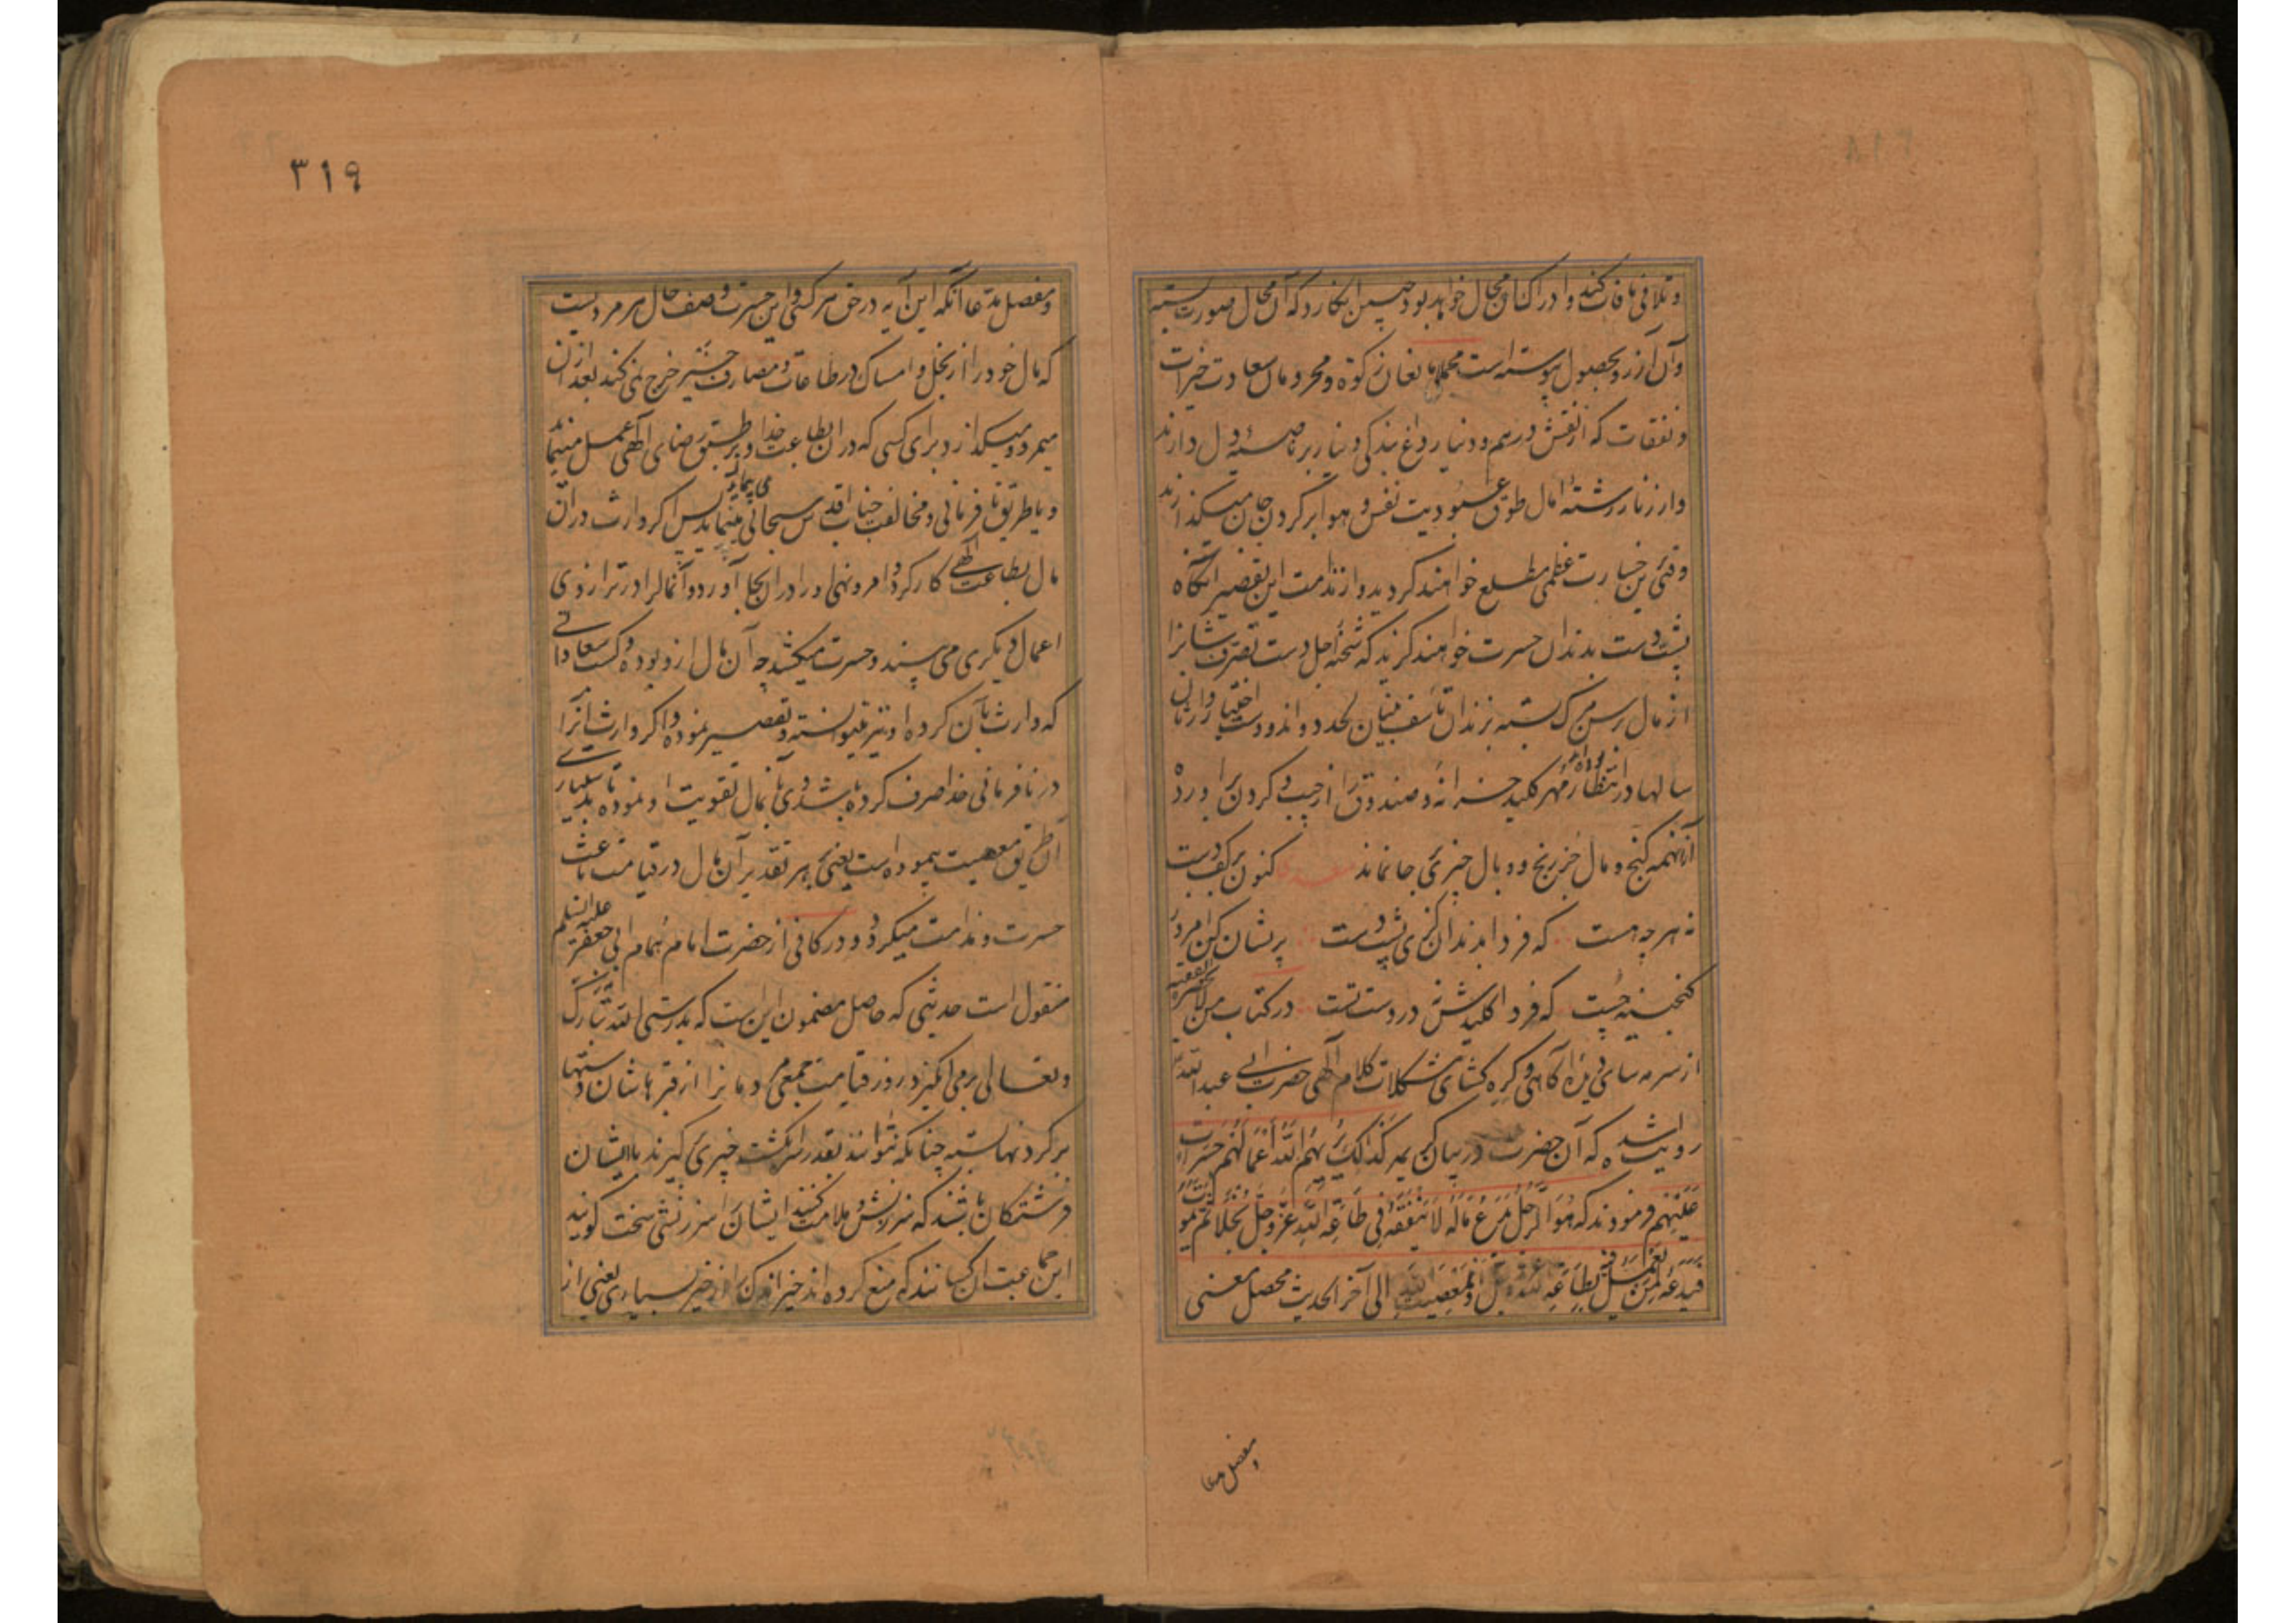 و تلافی مافات کنند و ادراک آن محال خواهد بود چسان انکارد که آن محال صورت بسته
و آن آرزو بحصول پیوسته است مجملا مانعان زکوة و محرومان سعادت خیرات
و نفقات که از نقش درهم و دینار داغ بندگی دینار بر ناصیهٔ دل دارند
و از زنار رشتهٔ امال طوق عبودیت نفس و هوا بر گردن جان میگذارند
وقتی برین خسارت عظمی مطلع خواهند گردید و از ندامت این تقصیر انگاه
پشت دست بدندان حسرت خواهند گزید که شحنهٔ اجل دست تصرف شانرا
از مال رسن مرگ بسته بزندان تأسف لحد دواند و دست اختیار وارثان
سالها در انتظار مهر کلید خزانه و صندوق را از جیب و گردن براورده
ازانهمه گنج و مال جز رنج و وبال چیزی بجا نماند کنون بر کف دست
نه هر چه هست که فردا بدندان گزی پشت دست پریشان کن امروز
گنجینه چست که فردا کلیدش نه در دست تست در کتاب من لا یحضره الفقیه
از سرمه سای دیدهٔ آگاهی و گره گشای مشکلات کلام الهی حضرت ابی عبدالله
روایت شده که آن حضرت در بیان کریمه کذلک یریهم الله اعمالهم حسرات
علیهم فرمودند که هو الرجل یدع ماله لا ینفقه فی طاعة الله عز و جل بخلا ثم یموت
فیدعه لمن یعمل فیه بطاعة الله او بمعصیة الله الی آخر الحدیث محصل معنی
و مفصل مدعا
۳۱۹
و مفصل مدعا آنکه این آیه در حق هر که و این حسرت وصف حال هر مردیست
که مال خود را از بخل و امساک در طاعات و مصارف خیر خرج نمی کند بعد ازان
میمرد و میگذارد برای کسی که در ان بطاعت خدا و بر طبق رضای الهی عمل مینماید
و یا طریق نافرمانی و مخالفت جناب اقدس سبحانی می پیماید پس اگر وارث دران
مال بطاعت الهی کار کرد و امر و نهی او را دران بجا آورد و آنمال را در ترازوی
اعمال دیگری می بیند و حسرت میکشد چه آن مال ازو بوده و کسب سعاداتی
که وارث بآن کرده او نیز میتوانسته و تقصیر نموده و اگر وارث آنرا
در نافرمانی خدا صرف کرده باشد وی بآنمال تقویت او نموده تا بدستیاری
آن طریق معصیت پیموده است یعنی بهر تقدیر آن مال در قیامت باعث
حسرت و ندامت میگردد و در کافی از حضرت امام همام ابی جعفر علیه السلام
منقول است حدیثی که حاصل مضمون این است که بدرستی الله تبارک
و تعالی بر می انگیزد روز قیامت جمعی مردمانرا از قبرهاشان دستها
بر گردنها بسته چنانکه نتوانند بقدر سر انگشت چیزی گیرند با ایشان
فرشتگان باشند که سرزنش و ملامت کنند ایشانرا سرزنشی سخت گویند
این جماعت آن کسانند که منع کرده اند خیر اندک را از خیر بسیاری یعنی از